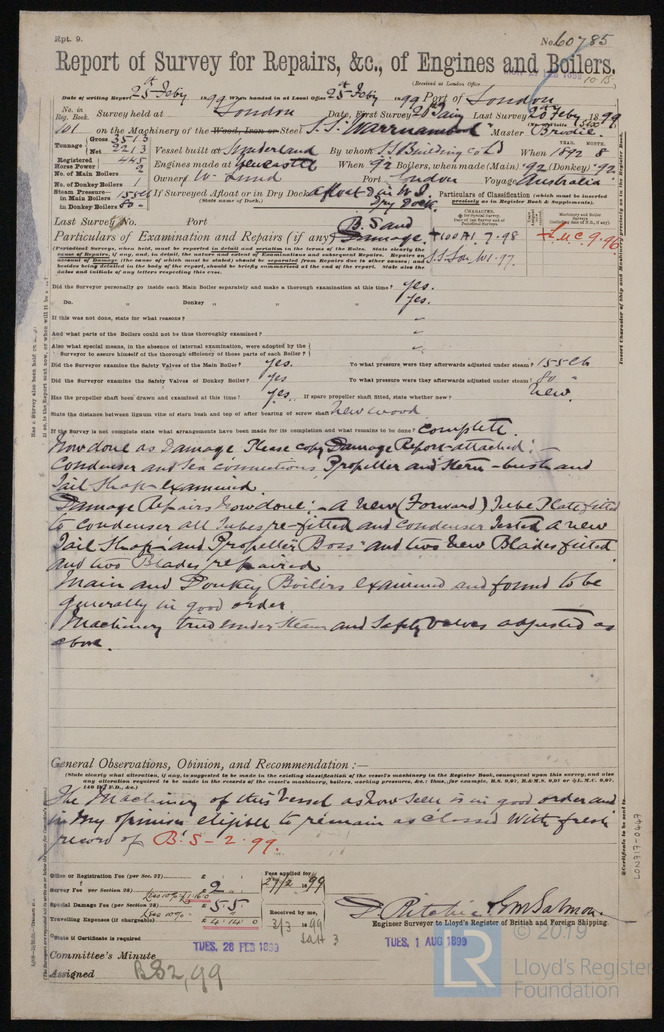 Rpt. 9. No. 60785
Report of Survey for Repairs, &c., of Engines and Boilers.
(Received at London Office
Date of writing Report 25th Feby 1899 When handed in at Local Office 25th Feby 1899 Port of London
No. in Reg. Book. Survey held at London Date, First Survey Last Survey 20 Feby 1899
101 on the Machinery of the Wood, Iron or Steel S.S. Warrnambool Master Brodie
Tonnage Gross 3513 Net 2213 Vessel built at Sunderland By whom S. Building Co Ld When 1892 8
YEAR. MONTH.
Registered Horse Power 445 Engines made at Newcastle When 92 Boilers, when made (Main) 92 (Donkey) 92
No. of Main Boilers 2 Owners W. Lund Port London Voyage Australia
No. of Donkey Boilers
Steam Pressure in Main Boilers 155 lb in Donkey Boilers 80 If Surveyed Afloat or in Dry Dock afloat & in W.I. Dry Dock.
(State name of Dock.)
Particulars of Classification (which must be inserted precisely as in Register Book & Supplements).
Last Survey No. Port
Particulars of Examination and Repairs (if any) B.S. and Damage. +100A1. 7.98
S.S. Lon. No1-97. +LMC 9.96
(Periodical Surveys, when held, must be reported in detail and seriatim in the terms of the Rules. State clearly the cause of Repairs, if any, and, in detail, the nature and extent of Examinations and subsequent Repairs. Repairs on account of Damage (the cause of which must be stated) should be separated from Repairs due to other causes; and besides being detailed in the body of the report, should be briefly summarised at the end of the report. State also the dates and initials of any letters respecting this case.
Did the Surveyor personally go inside each Main Boiler separately and make a thorough examination at this time? yes.
Do. " Donkey " " " " yes.
If this was not done, state for what reasons? "
And what parts of the Boilers could not be thus thoroughly examined? "
Also what special means, in the absence of internal examination, were adopted by the Surveyor to assure himself of the thorough efficiency of those parts of each Boiler? "
Did the Surveyor examine the Safety Valves of the Main Boiler? yes. To what pressure were they afterwards adjusted under steam? 155 lb
Did the Surveyor examine the Safety Valves of Donkey Boiler? yes To what pressure were they afterwards adjusted under steam? 80 "
Has the propeller shaft been drawn and examined at this time? yes. If spare propeller shaft fitted, state whether new? New.
State the distance between lignum vitæ of stern bush and top of after bearing of screw shaft New wood.
If the Survey is not complete state what arrangements have been made for its completion and what remains to be done? Complete.
Now done as Damage. Please copy Damage Report attached:-
Condenser and Sea connections, Propeller and Stern-bush and
Tail Shaft examined.
Damage Repairs Now done:- a new (Forward) Tube Plate fitted
to condenser all tubes re-fitted and condenser tested a new
Tail Shaft and Propeller Boss and two New Blades fitted
and two Blades repaired
Main and Donkey Boilers examined and found to be
generally in good order.
Machinery tried under Steam and Safety Valves adjusted as
above.
General Observations, Opinion, and Recommendation :—
(State clearly what alteration, if any, is suggested to be made in the existing classification of the vessel's machinery in the Register Book, consequent upon this survey, and also any alteration required to be made in the records of the vessel's machinery, boilers, working pressures, &c.: thus, for example, B.S. 9,97, B.&M.S. 9,97 or L.M.C. 9,97.
The Machinery of this Vessel as now seen is in good order and
in my opinion eligible to remain as Classed with fresh
record of B.S-2.99.
Office or Registration Fee (per Sec. 27) £ Fees applied for
Survey Fee (per Section 28) £ 2 27/2 1899
Special Damage Fee (per Section 28) £ 5.5 Received by me,
Travelling Expenses (if chargeable) £ 4.14.0 3/3 1899
D. Ritchie & Wm Salmon
Engineer Surveyor to Lloyd's Register of British and Foreign Shipping.
State if Certificate is required
Committee's Minute TUES. 28 FEB 1899 TUES. 1 AUG 1899
Assigned BS2,99
LON717-0447
© 2019
LR Lloyd's Register Foundation